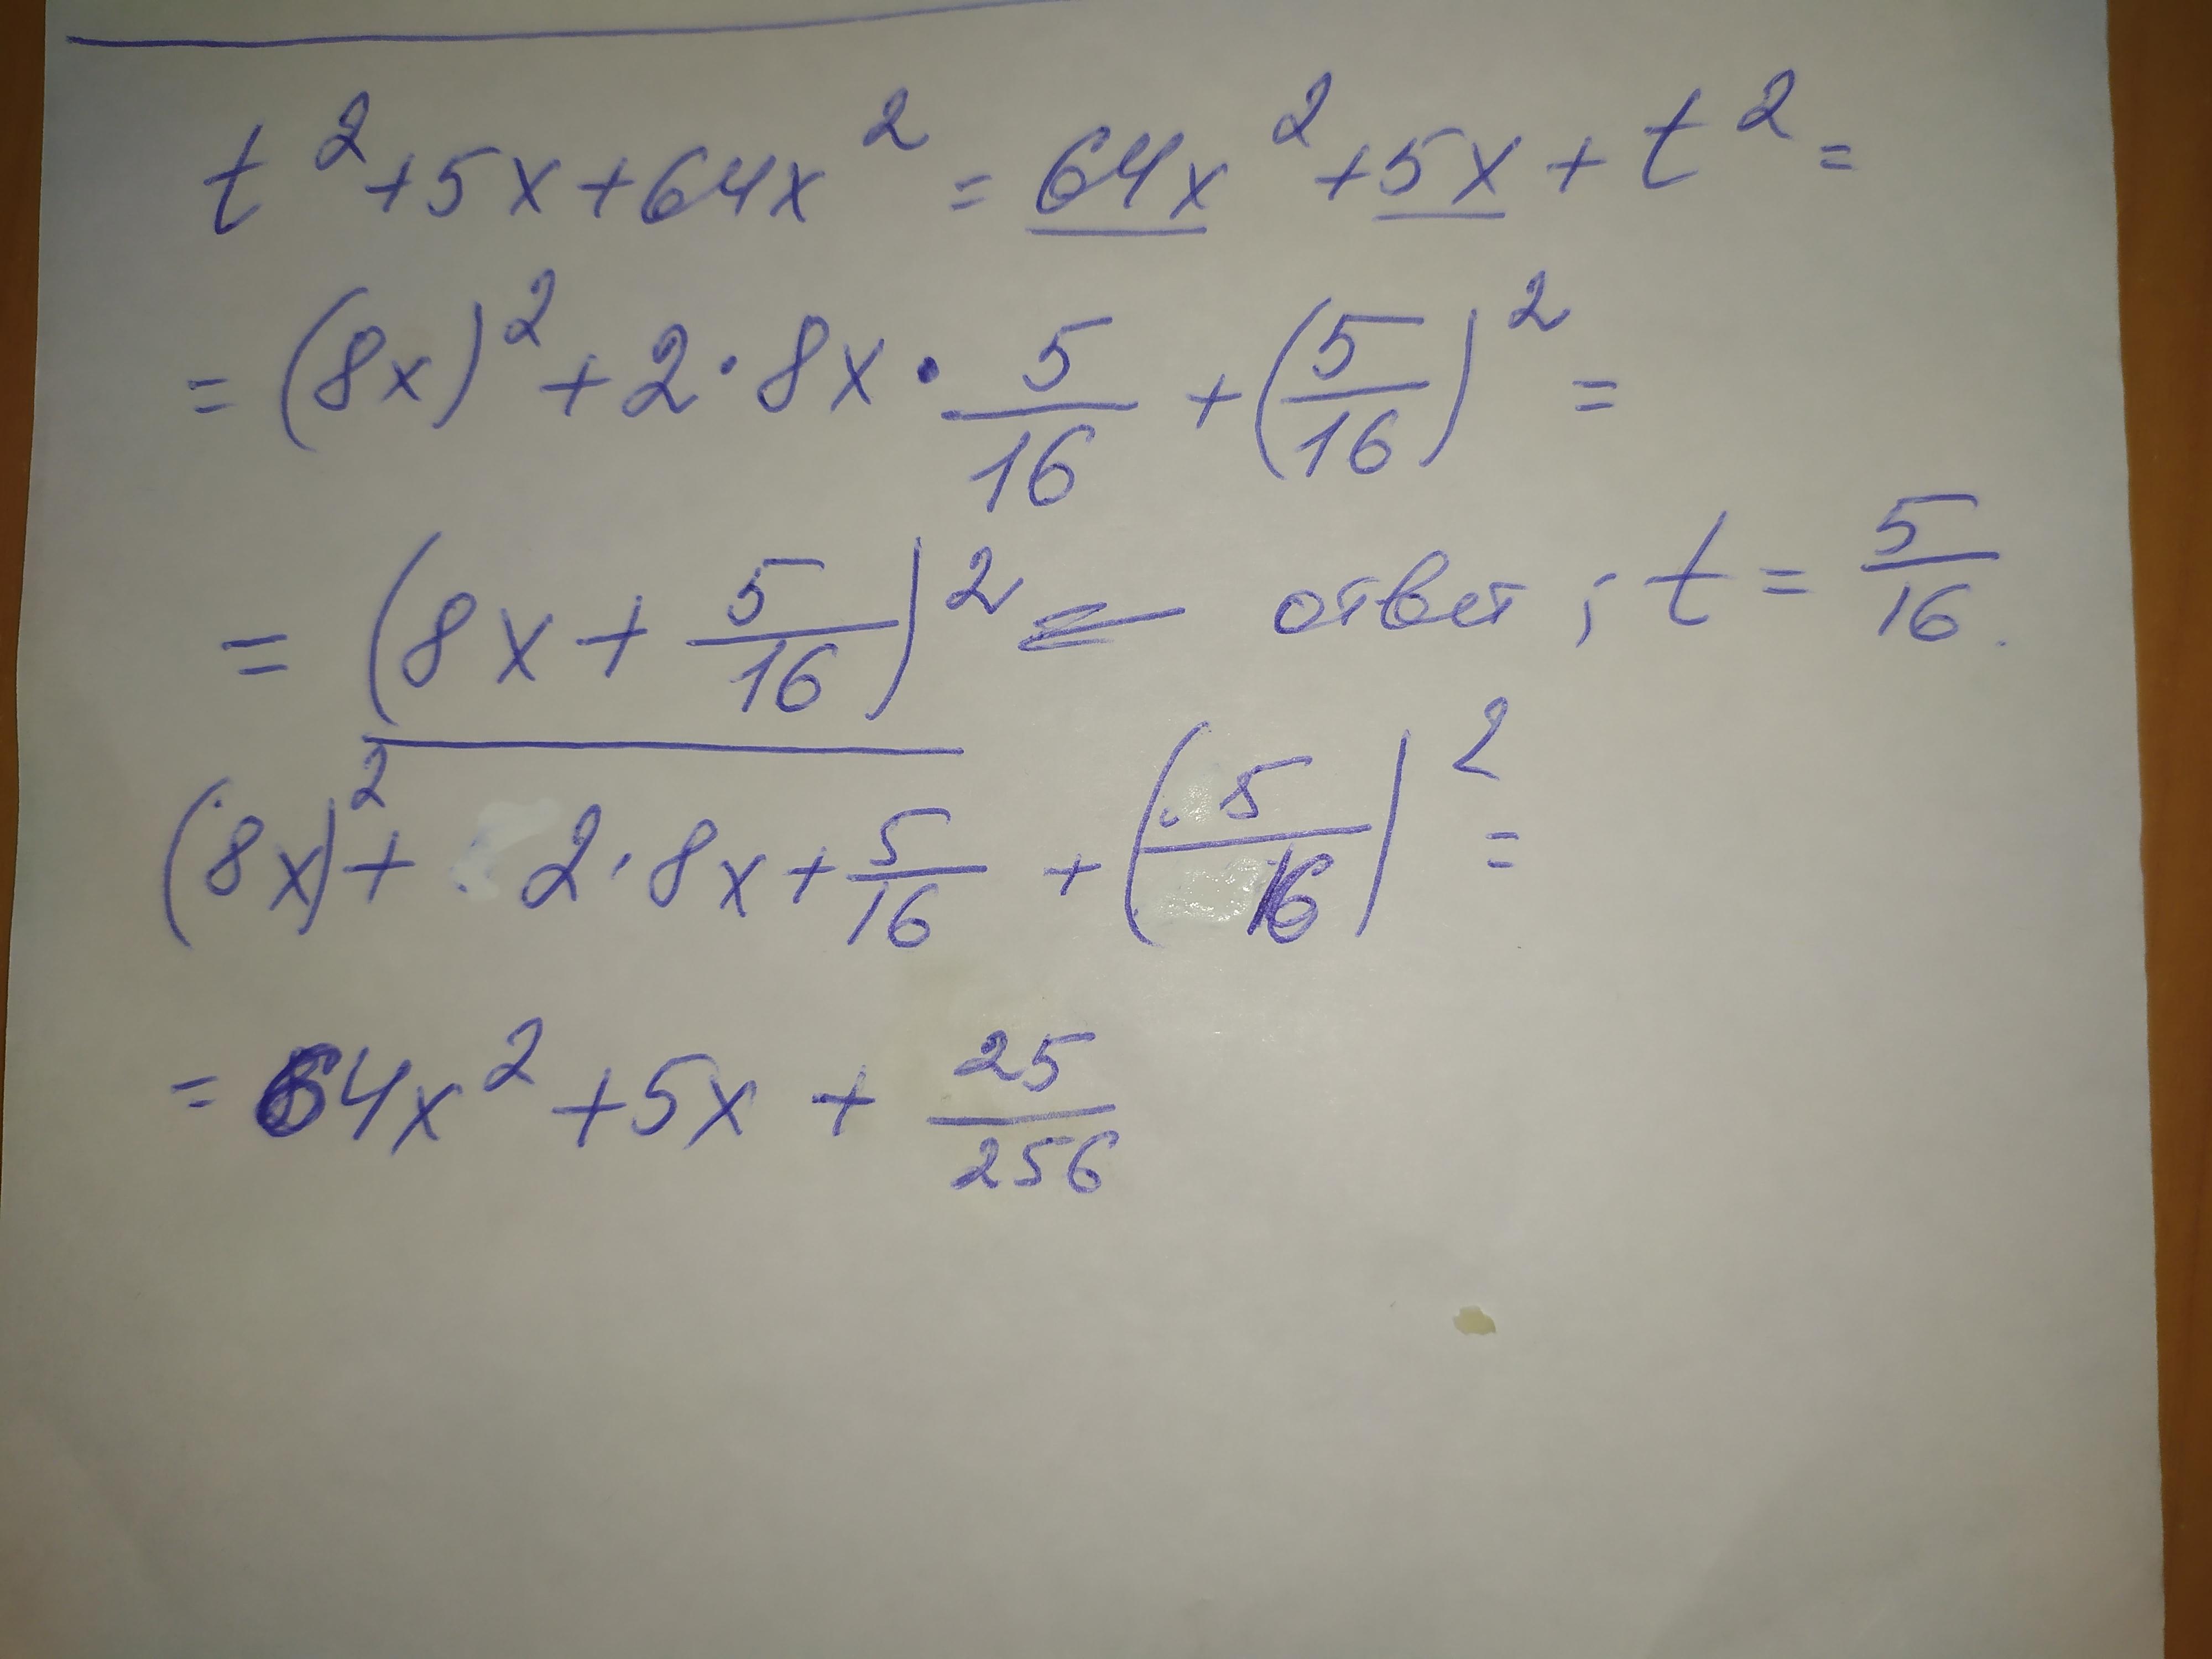 t² + 5x + 64x² = 64x² + 5x + t² =
= (8x)² + 2 · 8x · 5/16 + (5/16)² =
= (8x + 5/16)² = ответ ; t = 5/16.
(8x)² + 2 · 8x + 5/16 + (5/16)² =
= 64x² + 5x + 25/256